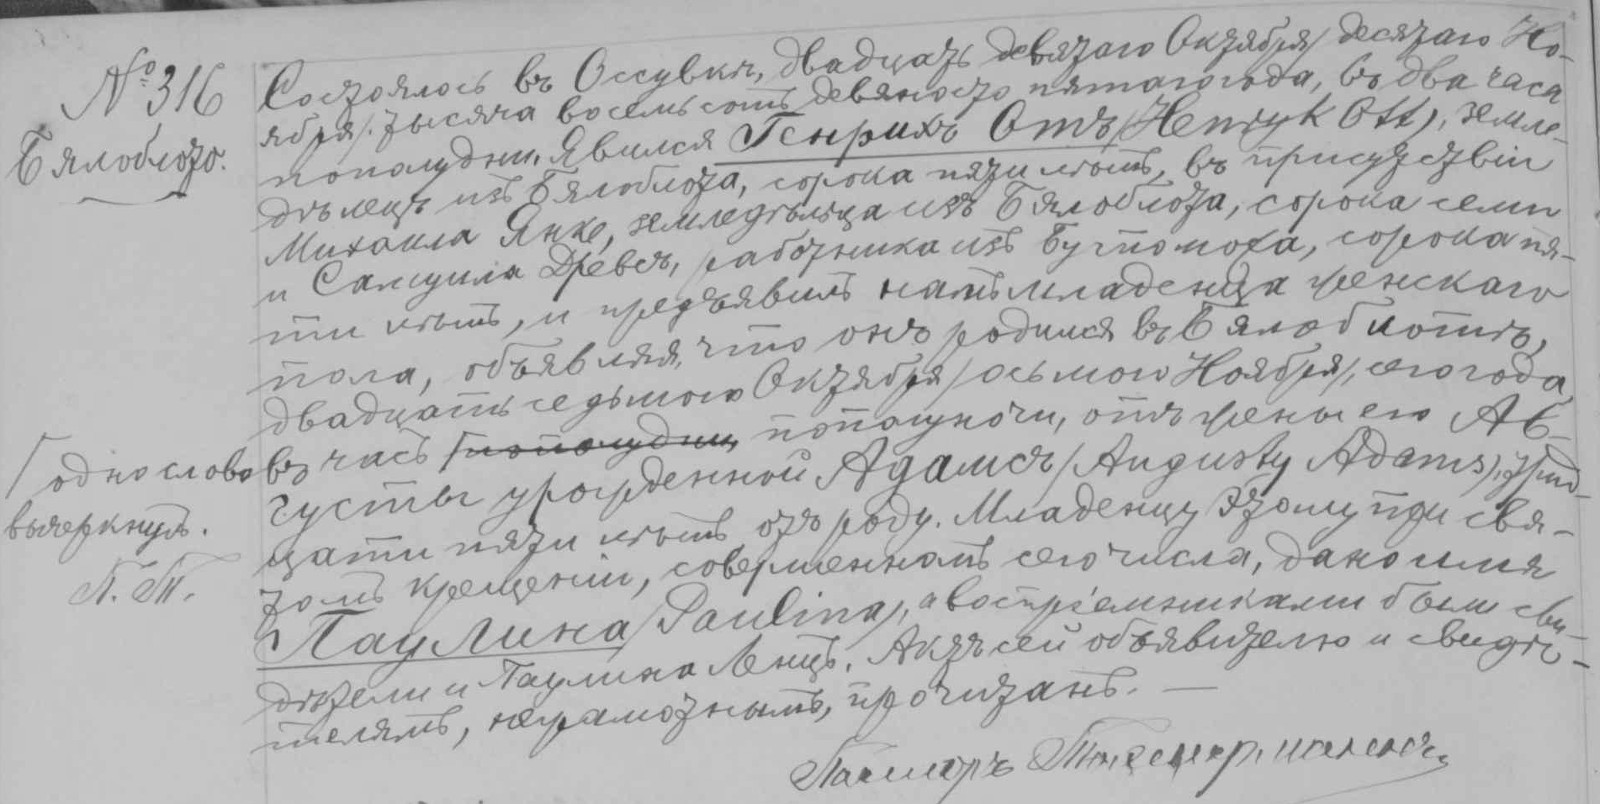 № 316
Бялоблото.
Состоялось въ Оссувкѣ, двадцать девятаго Октября /десятаго Но-
ября/ тысяча восемьсотъ девяносто пятаго года, въ два часа
пополудни. Явился Генрихъ Отъ /Henryk Ott/, земле-
дѣлецъ изъ Бялоблота, сорока пяти лѣтъ, въ присутствіи
Михаила Янке, земледѣльца изъ Бялоблота, сорока семи
и Самуила Древсъ, работника изъ, сорока пя-
ти лѣтъ, и предъявилъ намъ младенца женскаго
пола, объявляя, что онъ родился въ Бялоблотѣ,
двадцать седьмого Октября /осьмого Ноября/, сего года,
въ часъ пополудни, пополуночи, отъ жены его Ав-
густы урожденной Адамсъ /Augusty Adams/, трид-
цати пяти лѣтъ отъ роду. Младенцу этому при свя-
томъ крещеніи, совершенномъ сего числа, дано имя
Паулина /Paulina/, а воспріемниками были сви-
дѣтели и Паулина Ленцъ. Актъ сей объявителю и свидѣ-
телямъ, неграмотнымъ, прочитанъ. —
Пасторъ
Г одно слово
вычеркнулъ.
П. Т.